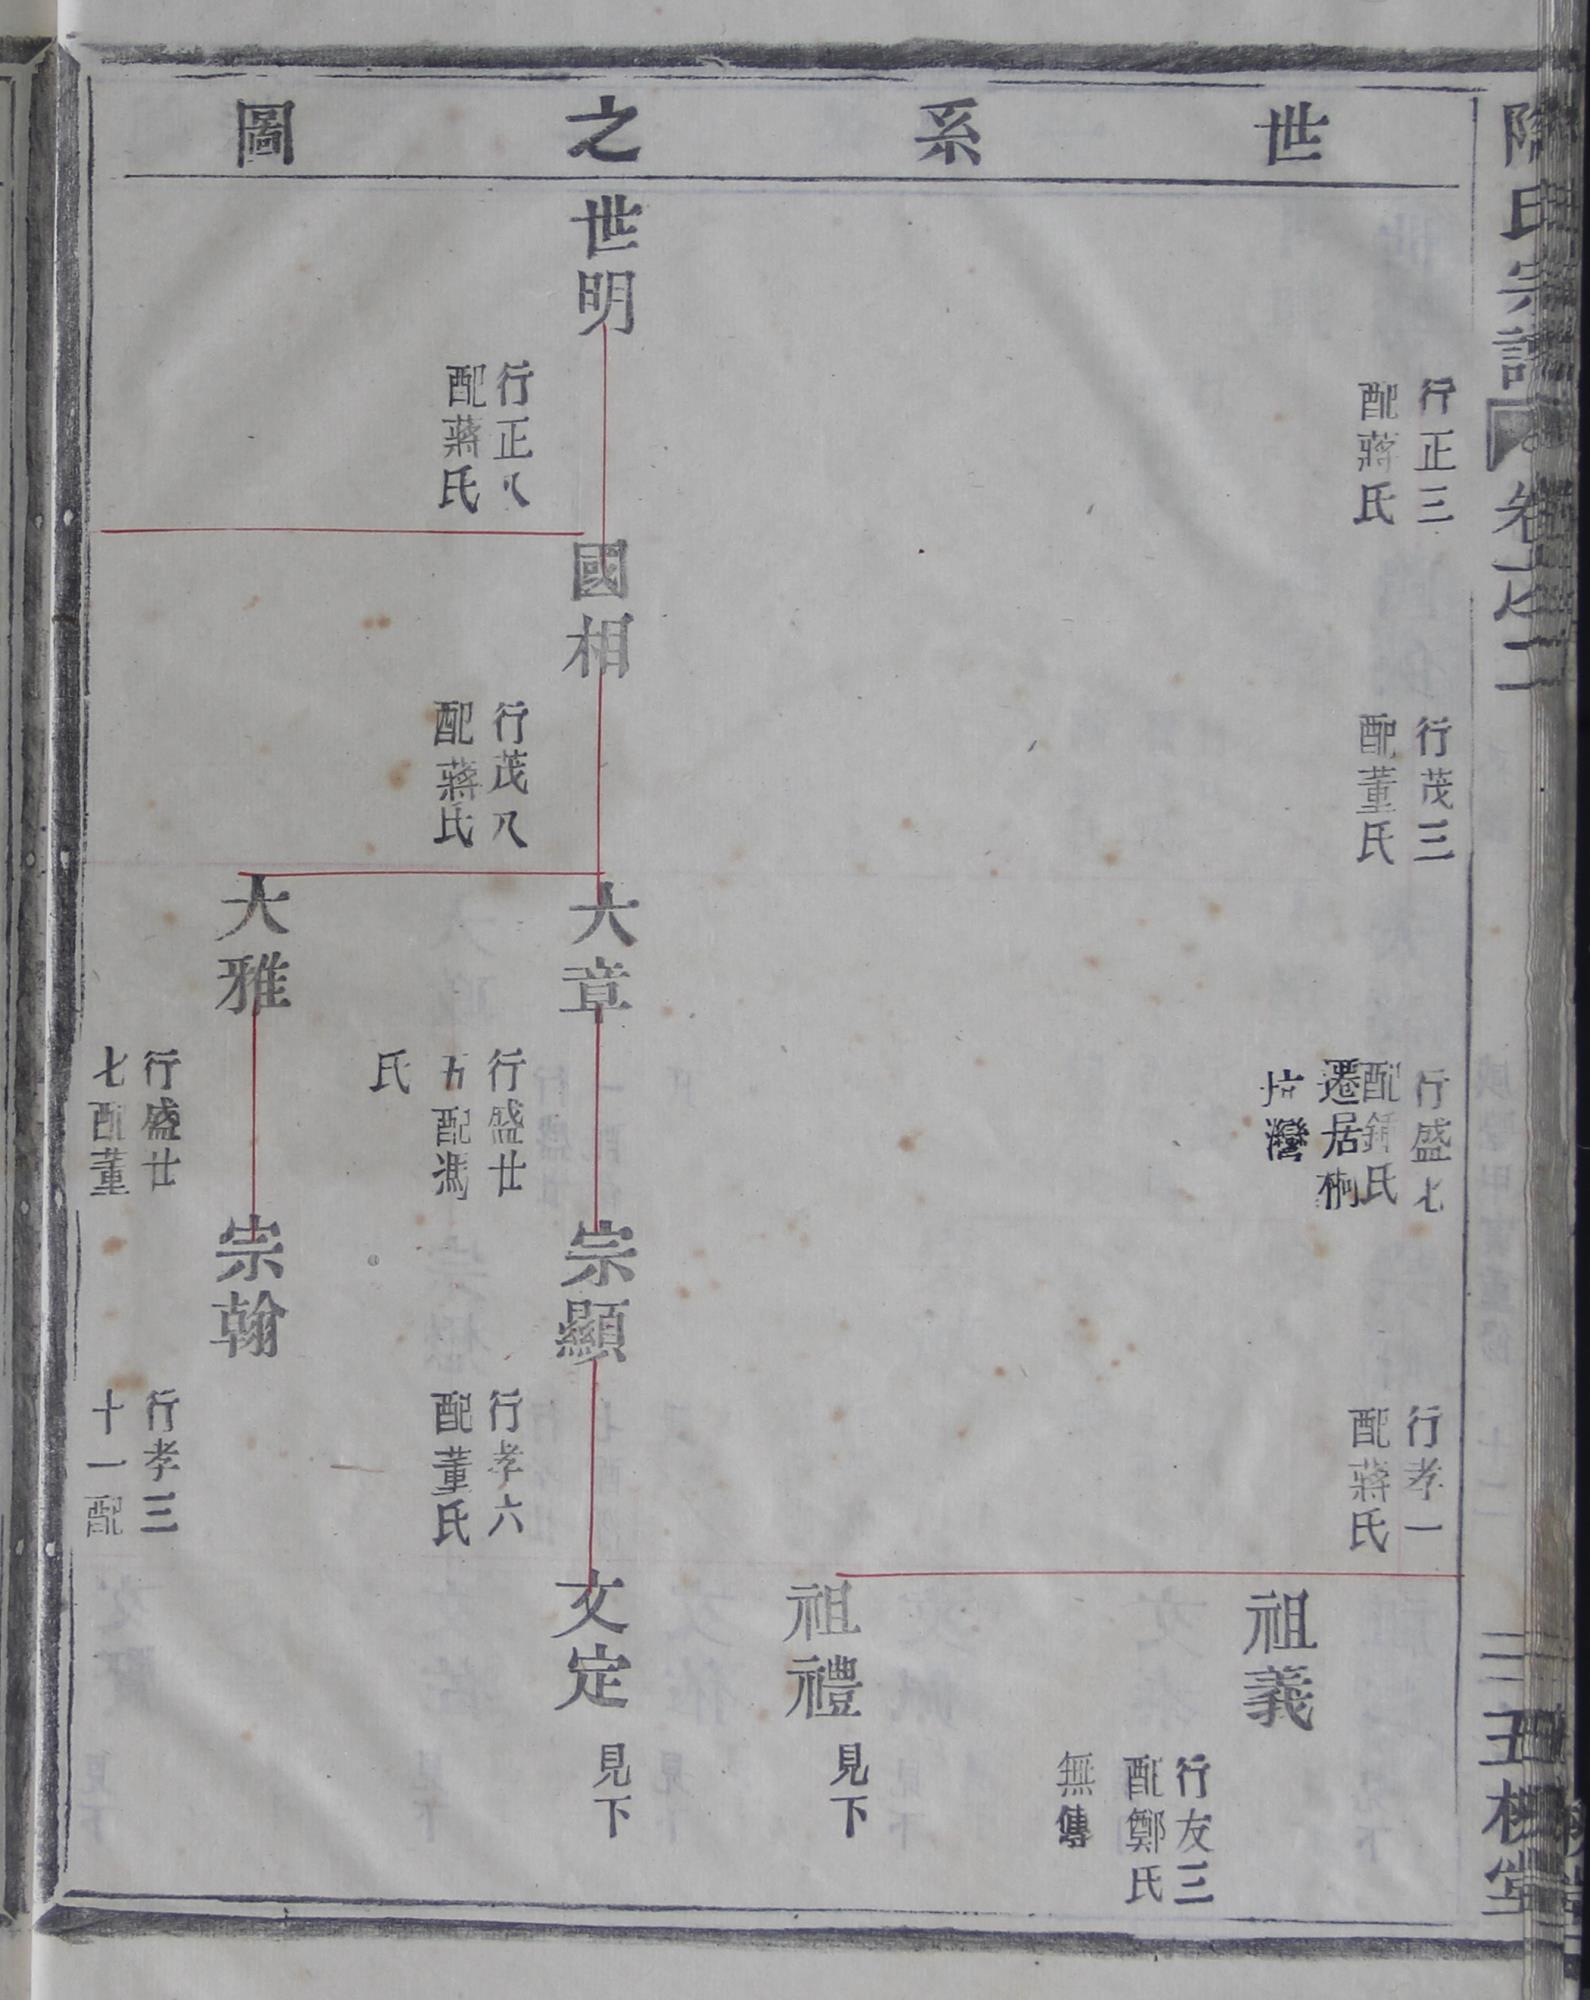 世系之圖
氏宗譜
卷之二
行正三
配蔣氏
行茂三
配董氏
行盛七
配鍾氏
遷居桐
坑灣
行孝一
配蔣氏
祖義
行友三
配鄭氏
無傳
祖禮
見下
世明
行正八
配蔣氏
國相
行茂八
配蔣氏
大章
行盛廿
五配馮
氏
宗顯
行孝六
配董氏
文定
見下
大雅
行盛廿
七配董
宗翰
行孝三
十一配